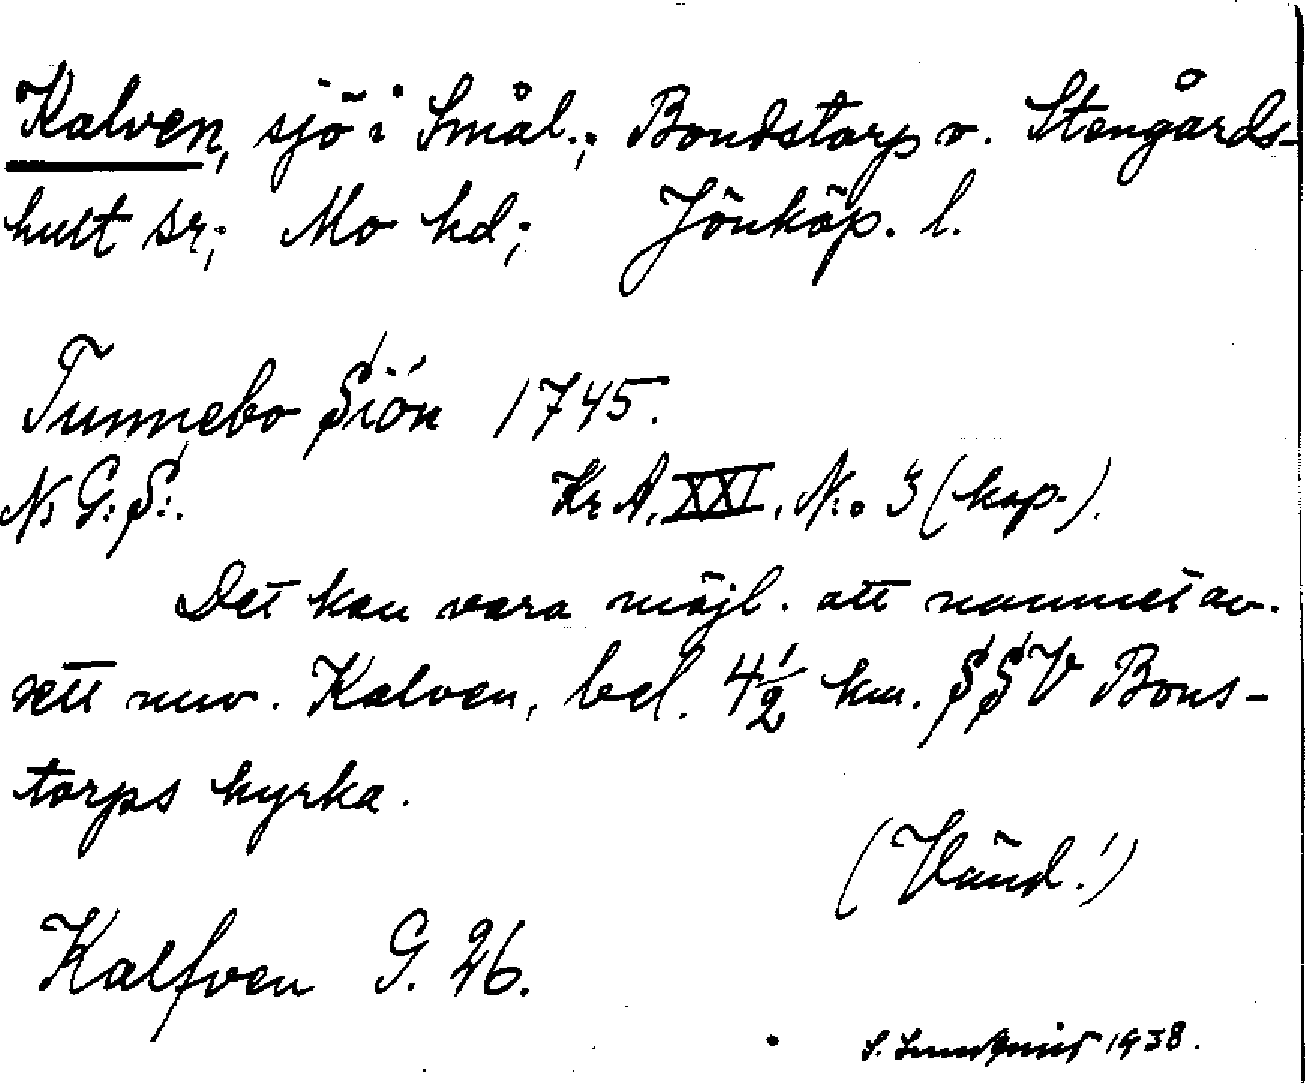 Kalven, sjö i Smål.; Bondstorp o. Stengårds-
hult sr; Mo hd; Jönköp. l.
Tunnebo Siön 1745.
N: G: S:. Kr. A. XXI. N:o 3 (kop.).
Det kan vara möjl. att namnet av-
sett nuv. Kalven, bel. 4 1/2 km. SSV Bons-
torps kyrka.
(Vänd!)
Kalfven G. 26.
S. 1938.